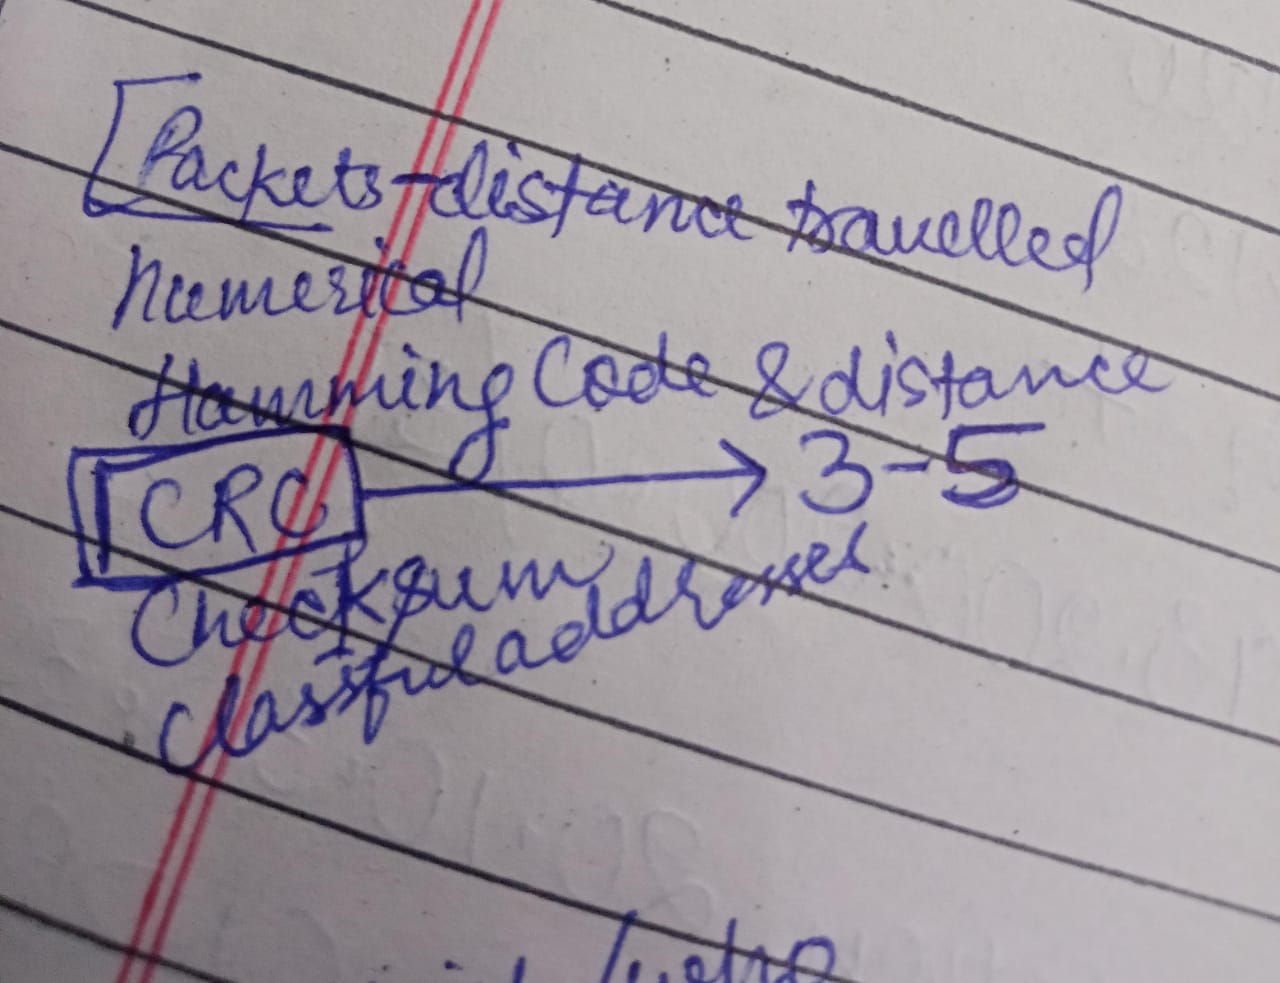 Packets-distance travelled
Numerical
Hamming Code & distance
CRC → 3-5
Checksum
Classful addresses